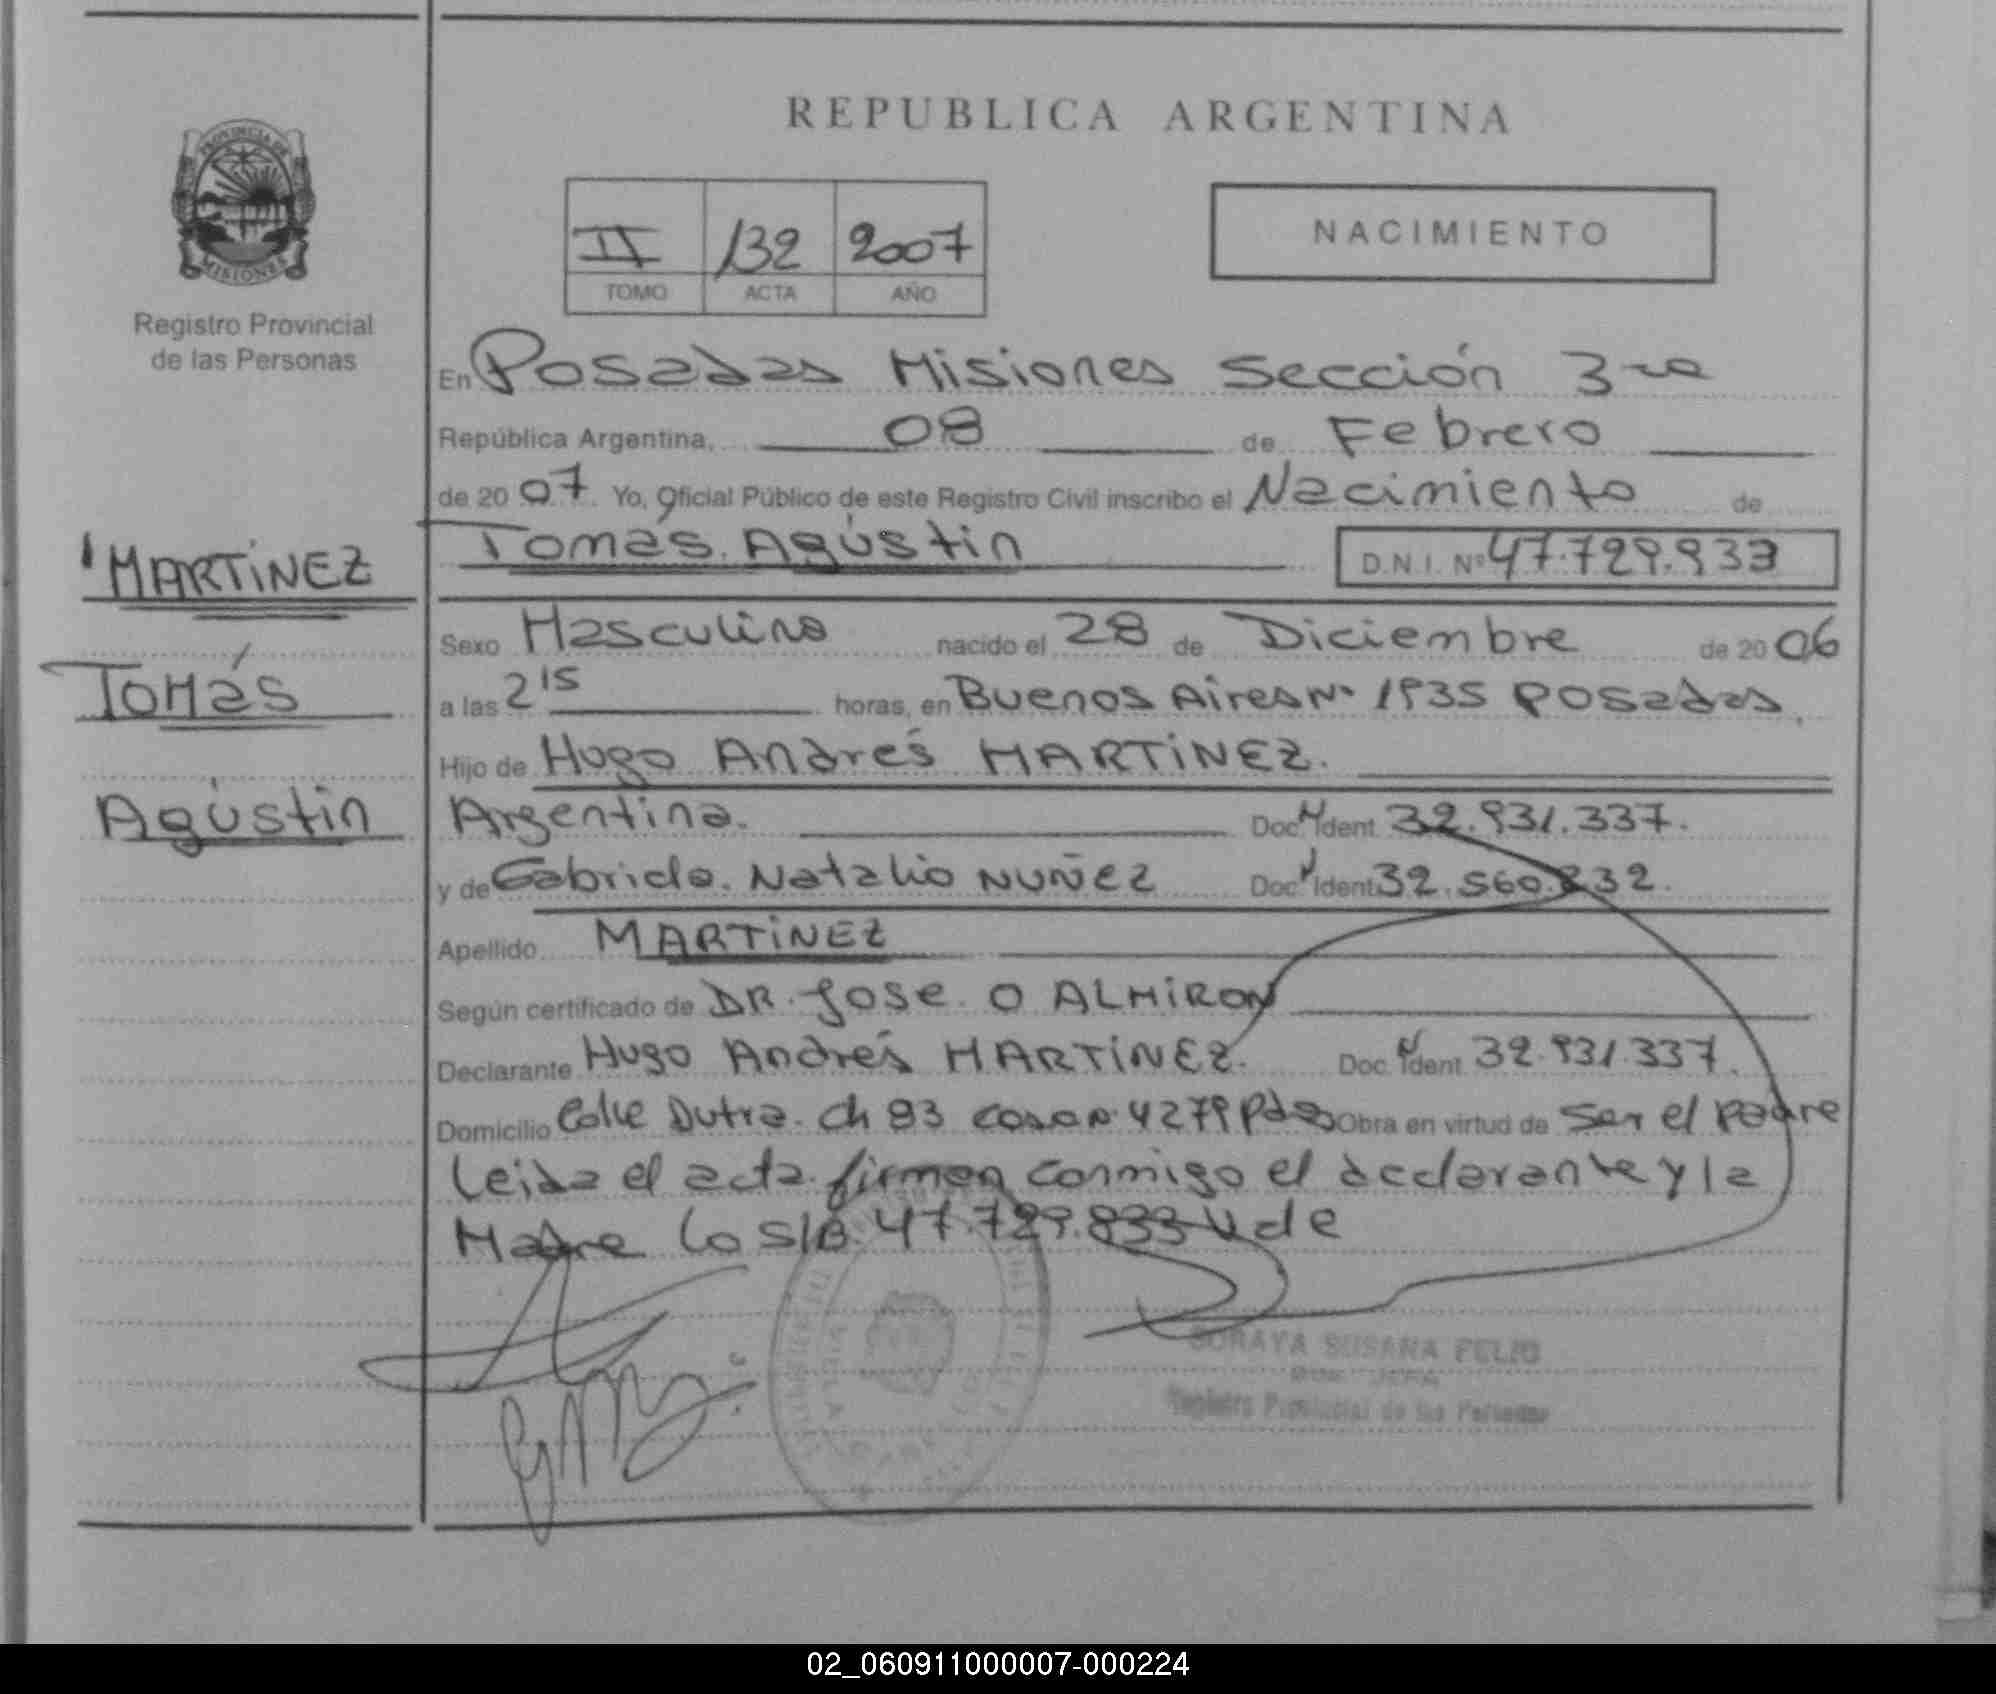 REPUBLICA ARGENTINA
PROVINCIA DE
MISIONES
Registro Provincial
de las Personas
II 132 2007
TOMO ACTA AÑO
NACIMIENTO
En Posadas Misiones Sección 3ra
República Argentina, 08 de Febrero
de 2007. Yo, Oficial Público de este Registro Civil inscribo el Nacimiento de
Tomás Agústin D.N.I. Nº 47.729.933
MARTíNEZ
Tomás
Agústin
Sexo Masculino nacido el 28 de Diciembre de 2006
a las 2 15 horas, en Buenos Aires Nº 1935 Posadas,
Hijo de Hugo Andrés MARTiNEZ.
Argentina. Doc. Ident. 32.931.337.
y de Gabriela. Natalia NUÑEZ Doc. Ident. 32.560.832.
Apellido MARTiNEZ
Según certificado de DR. Jose O ALMiRON
Declarante Hugo Andrés MARTiNEZ. Doc. Ident. 32.931.337.
Domicilio Calle Dutra. Ch 93 casa N 4279 Pdas Obra en virtud de Ser el Padre
Leida el acta firman conmigo el declarante y la
Madre Lo S/B. 47.729.833 Vde
SORAYA SUSANA FELIO
JEFA
Registro Provincial de las Personas
02_060911000007-000224